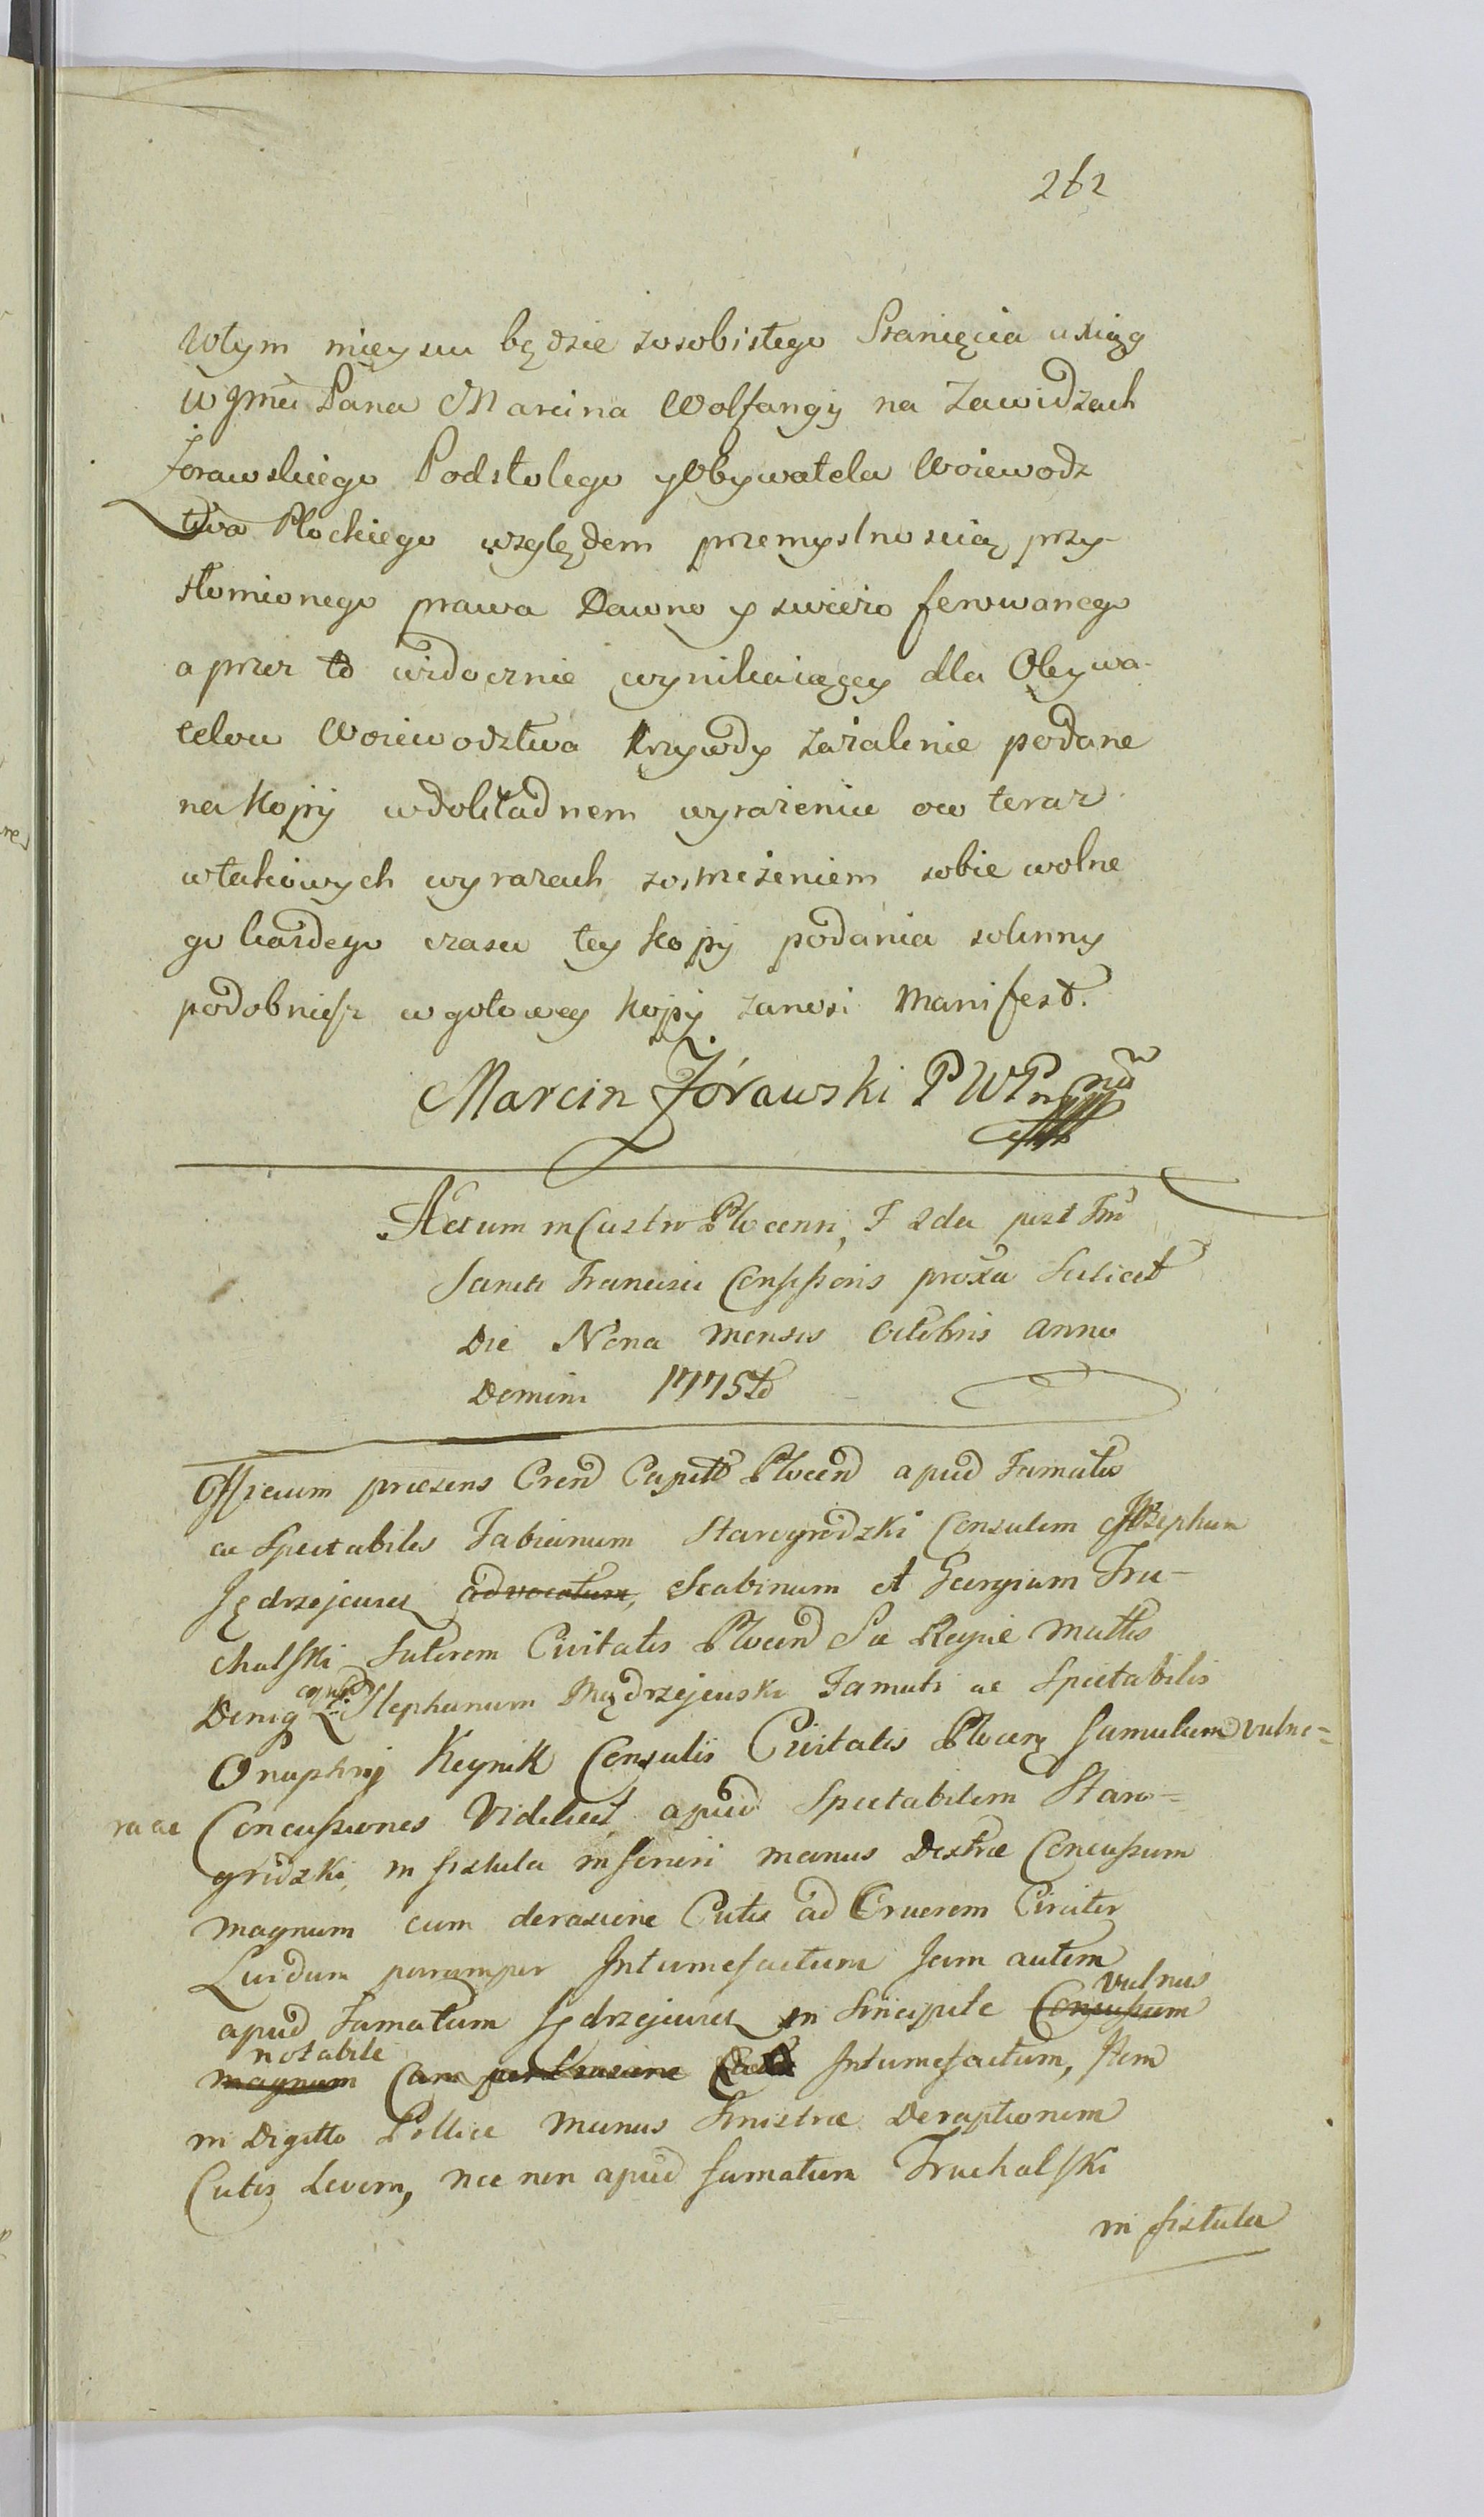 262
Wtym mieyscu będzie zosobistego Stanięcia uxiąg
W Jmci Pana Marcina Wolfangij na Zawidzach
Żorawskiego Podstolego y Obywatela Woiewodz
twa Płockiego względem przemyslnoscią przy-
tłomionego prawa Dawno y swieżo ferowanego
a przez to widocznie wynikaiącey dla Obywa-
telow Woiewodztwa krzywdy zażalenie podane
na Kopij wdokładnem wyrażeniu ow teraz
wtakowych wyrazach zostrzeżeniem sobie wolne
go każdego czasu tey kopij podania solenny
podobniesz w gotowey kopij zanosi Manifest.
Marcin Żórawski PWP mp
Actum in Castro Plocensi, F 2da post Fm
Sancti Francisci Confessoris proxa Scilicet
Die Nona Mensis Octobris Anno
Domini 1775to
Officium praesens Cren Capitle Plocen apud Famatos
ac Spectabiles Fabianum Starogrodzki Consulem Josephum
Jędrzejewicz advocatum, Scabinum et Georgium Tru-
chalski Civitatis Plocen Sae Regiae Mattis
Deniq Stephanum Mądrzejewski Famati ac Spectabilis
Onuphrij Keynik Consulis Civitatis Plocen famulum vulne=
ra ac Concussiones Videlicet apud Spectabilem Staro=
grodzki, in fistula inferiori manus Dextrae Concussum
magnum cum derasione Cutis ad Cruorem Circiter
Lividum parumper Intumefactum Jam autem
apud Famatum Jędrzejewicz in Sincipite Concussum vulnus
notabile
magnum Cum Intumefactum, Item
in Digitto Pollice Manus Sinistrae Deraptionem
Cutis Levem, nec non apud famatum Truchalski
in fistula